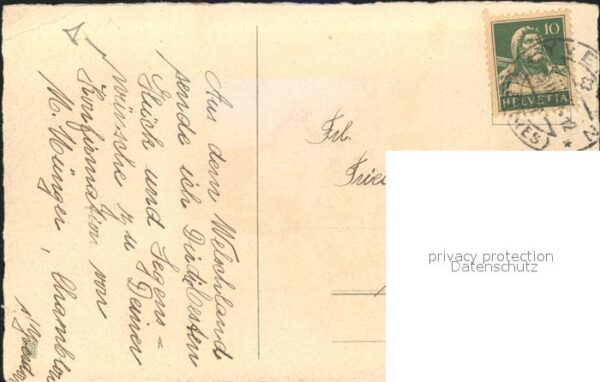 Aus dem Welschland
sende ich Dir die besten
Glück und Segens-
wünsche zu Deiner
Konfirmation von
M. Münger, Chamblon
Frl.
Fried
10
HELVETIA
privacy protection
Datenschutz